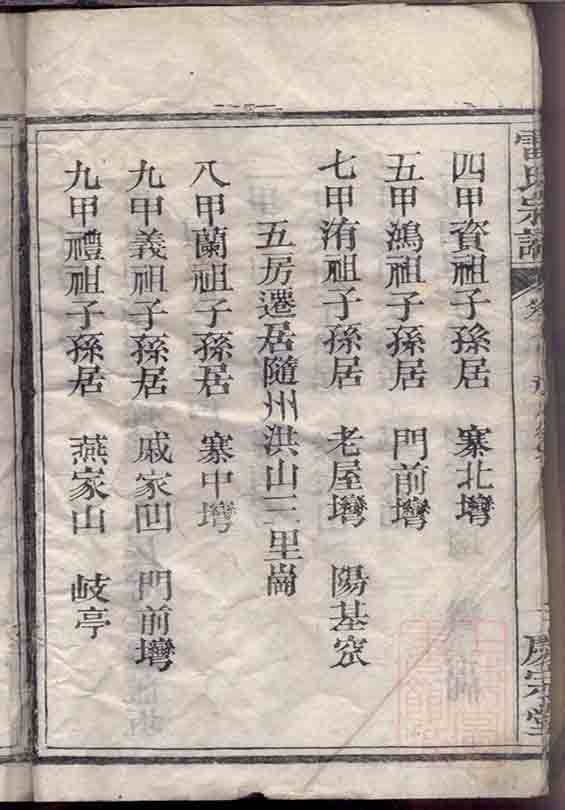 雷氏宗譜
慶宗堂
四甲資祖子孫居 寨北塆
五甲鴻祖子孫居 門前塆
七甲洧祖子孫居 老屋塆 陽基窊
五房遷居隨州洪山三里崗
八甲蘭祖子孫居 寨中塆
九甲義祖子孫居 戚家凹 門前塆
九甲禮祖子孫居 燕家山 岐亭